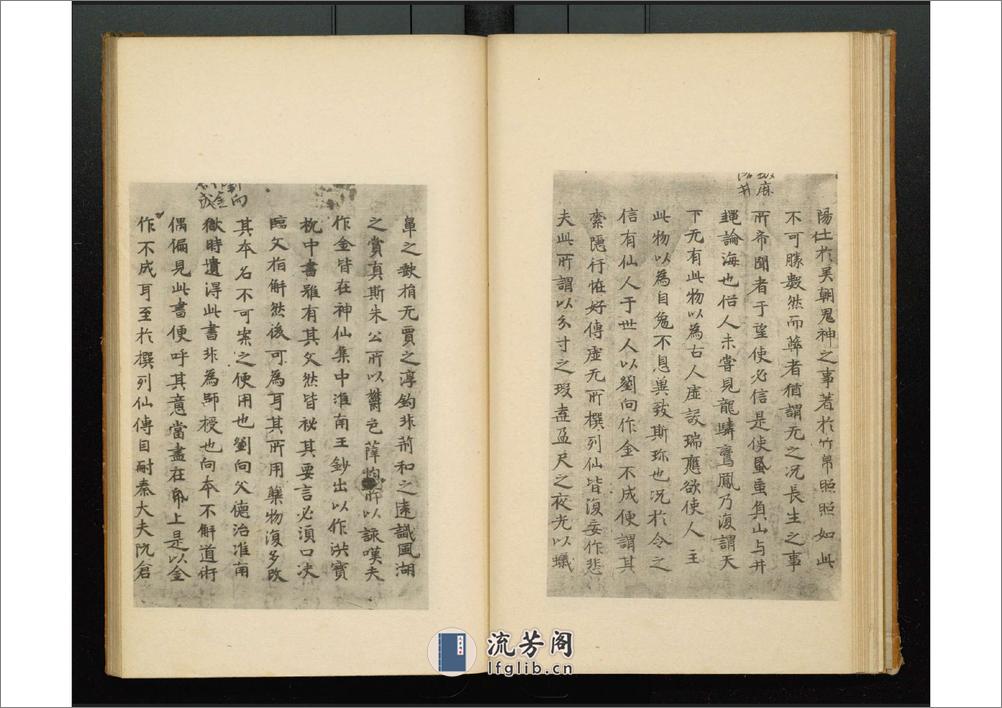 陽仕於吳朝鬼神之事著於竹帛照照如此
不可勝數然而蔽者猶謂无之况長生之事
所希聞者于望使必信是使蚤䖟負山与井
䵷論海也俗人未嘗見龍驎鸞鳳乃復謂天
下无有此物以為古人虛設瑞應欲使人主
此物以為自勉不息兾致斯珎也况於令之
信有仙人于世人以劉向作金不成便謂其
索隱行恠好傳虛无所撰列仙皆復妄作悲
夫此所謂以分寸之瑕棄盈尺之夜光以蟻
鼻之缺捐无買之淳鈞非荊和之遠識風湖
之賞真斯朱公所以欝邑薛燭所以詠嘆夫
作金皆在神仙集中淮南王鈔出以作洪寶
枕中書雖有其文然皆秘其要言必須口决
臨文指解然後可為耳其所用藥物復多改
其本名不可案之便用也劉向父德治淮南
獄時遺得此書非為師授也向本不解道術
偶偏見此書便呼其意當盡在帋上是以金
作不成耳至於撰列仙傳自刪秦大夫阮倉
流芳阁
lfglib.cn